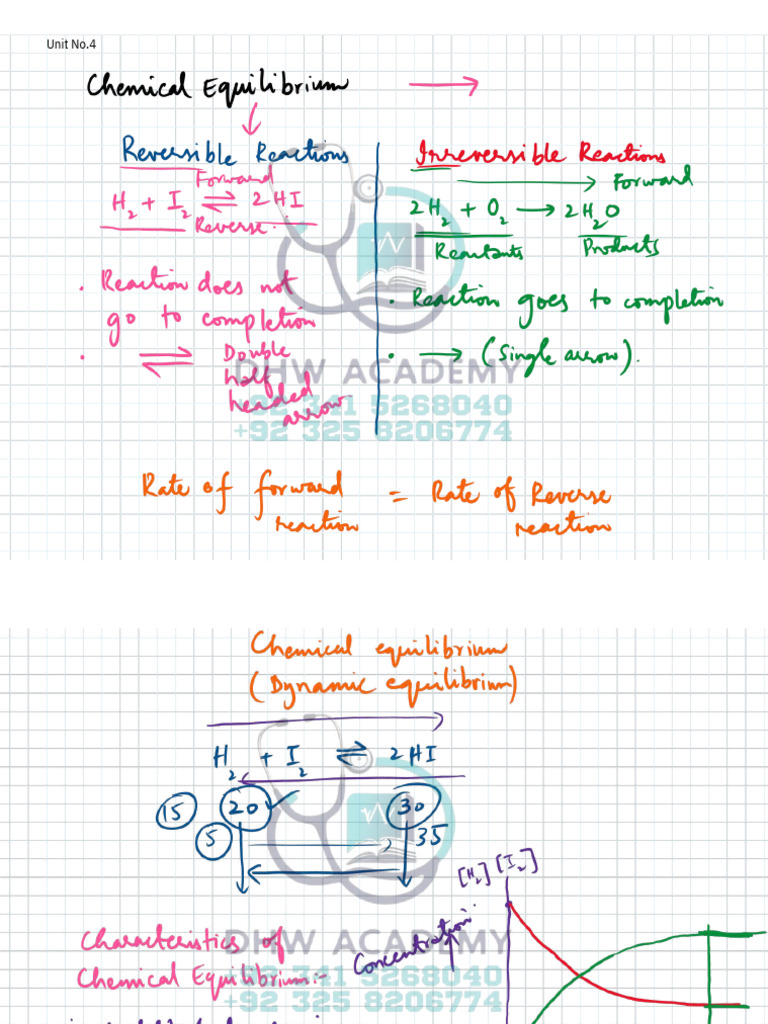 Unit No.4
Chemical Equilibrium →
↓
Reversible Reactions
Forward
H₂ + I₂ ⇌ 2HI
Reverse.
. Reaction does not
go to completion
. ⇌ Double
half
headed
arrow.
Irreversible Reactions
→ Forward
2H₂ + O₂ → 2H₂O
Reactants Products
. Reaction goes to completion
. → (Single arrow).
DHW ACADEMY
+92 341 5268040
+92 325 8206774
Rate of forward = Rate of Reverse
reaction reaction
Chemical equilibrium
(Dynamic equilibrium)
H₂ + I₂ ⇌ 2HI
15 20 30
5 35
[H₂] [I₂]
Concentration
Characteristics of
Chemical Equilibrium:-
DHW ACADEMY
+92 341 5268040
+92 325 8206774